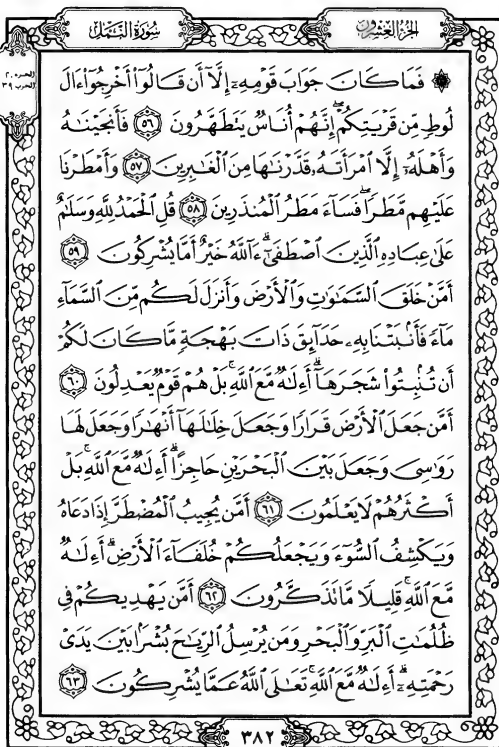 الجزء العشرون
سورة النمل
الجزء ٢٠
الحزب ٣٩
۞ فَمَا كَانَ جَوَابَ قَوْمِهِۦٓ إِلَّآ أَن قَالُوٓا۟ أَخْرِجُوٓا۟ ءَالَ
لُوطٍ مِّن قَرْيَتِكُمْ ۖ إِنَّهُمْ أُنَاسٌ يَتَطَهَّرُونَ ٥٦ فَأَنجَيْنَٰهُ
وَأَهْلَهُۥٓ إِلَّا ٱمْرَأَتَهُۥ قَدَّرْنَٰهَا مِنَ ٱلْغَٰبِرِينَ ٥٧ وَأَمْطَرْنَا
عَلَيْهِم مَّطَرًا ۖ فَسَآءَ مَطَرُ ٱلْمُنذَرِينَ ٥٨ قُلِ ٱلْحَمْدُ لِلَّهِ وَسَلَٰمٌ
عَلَىٰ عِبَادِهِ ٱلَّذِينَ ٱصْطَفَىٰٓ ۗ ءَآللَّهُ خَيْرٌ أَمَّا يُشْرِكُونَ ٥٩
أَمَّنْ خَلَقَ ٱلسَّمَٰوَٰتِ وَٱلْأَرْضَ وَأَنزَلَ لَكُم مِّنَ ٱلسَّمَآءِ
مَآءً فَأَنۢبَتْنَا بِهِۦ حَدَآئِقَ ذَاتَ بَهْجَةٍ مَّا كَانَ لَكُمْ
أَن تُنۢبِتُوا۟ شَجَرَهَآ ۗ أَءِلَٰهٌ مَّعَ ٱللَّهِ ۚ بَلْ هُمْ قَوْمٌ يَعْدِلُونَ ٦٠
أَمَّن جَعَلَ ٱلْأَرْضَ قَرَارًا وَجَعَلَ خِلَٰلَهَآ أَنْهَٰرًا وَجَعَلَ لَهَا
رَوَٰسِىَ وَجَعَلَ بَيْنَ ٱلْبَحْرَيْنِ حَاجِزًا ۗ أَءِلَٰهٌ مَّعَ ٱللَّهِ ۚ بَلْ
أَكْثَرُهُمْ لَا يَعْلَمُونَ ٦١ أَمَّن يُجِيبُ ٱلْمُضْطَرَّ إِذَا دَعَاهُ
وَيَكْشِفُ ٱلسُّوٓءَ وَيَجْعَلُكُمْ خُلَفَآءَ ٱلْأَرْضِ ۗ أَءِلَٰهٌ
مَّعَ ٱللَّهِ ۚ قَلِيلًا مَّا تَذَكَّرُونَ ٦٢ أَمَّن يَهْدِيكُمْ فِى
ظُلُمَٰتِ ٱلْبَرِّ وَٱلْبَحْرِ وَمَن يُرْسِلُ ٱلرِّيَٰحَ بُشْرًۢا بَيْنَ يَدَىْ
رَحْمَتِهِۦٓ ۗ أَءِلَٰهٌ مَّعَ ٱللَّهِ ۚ تَعَٰلَى ٱللَّهُ عَمَّا يُشْرِكُونَ ٦٣
٣٨٢